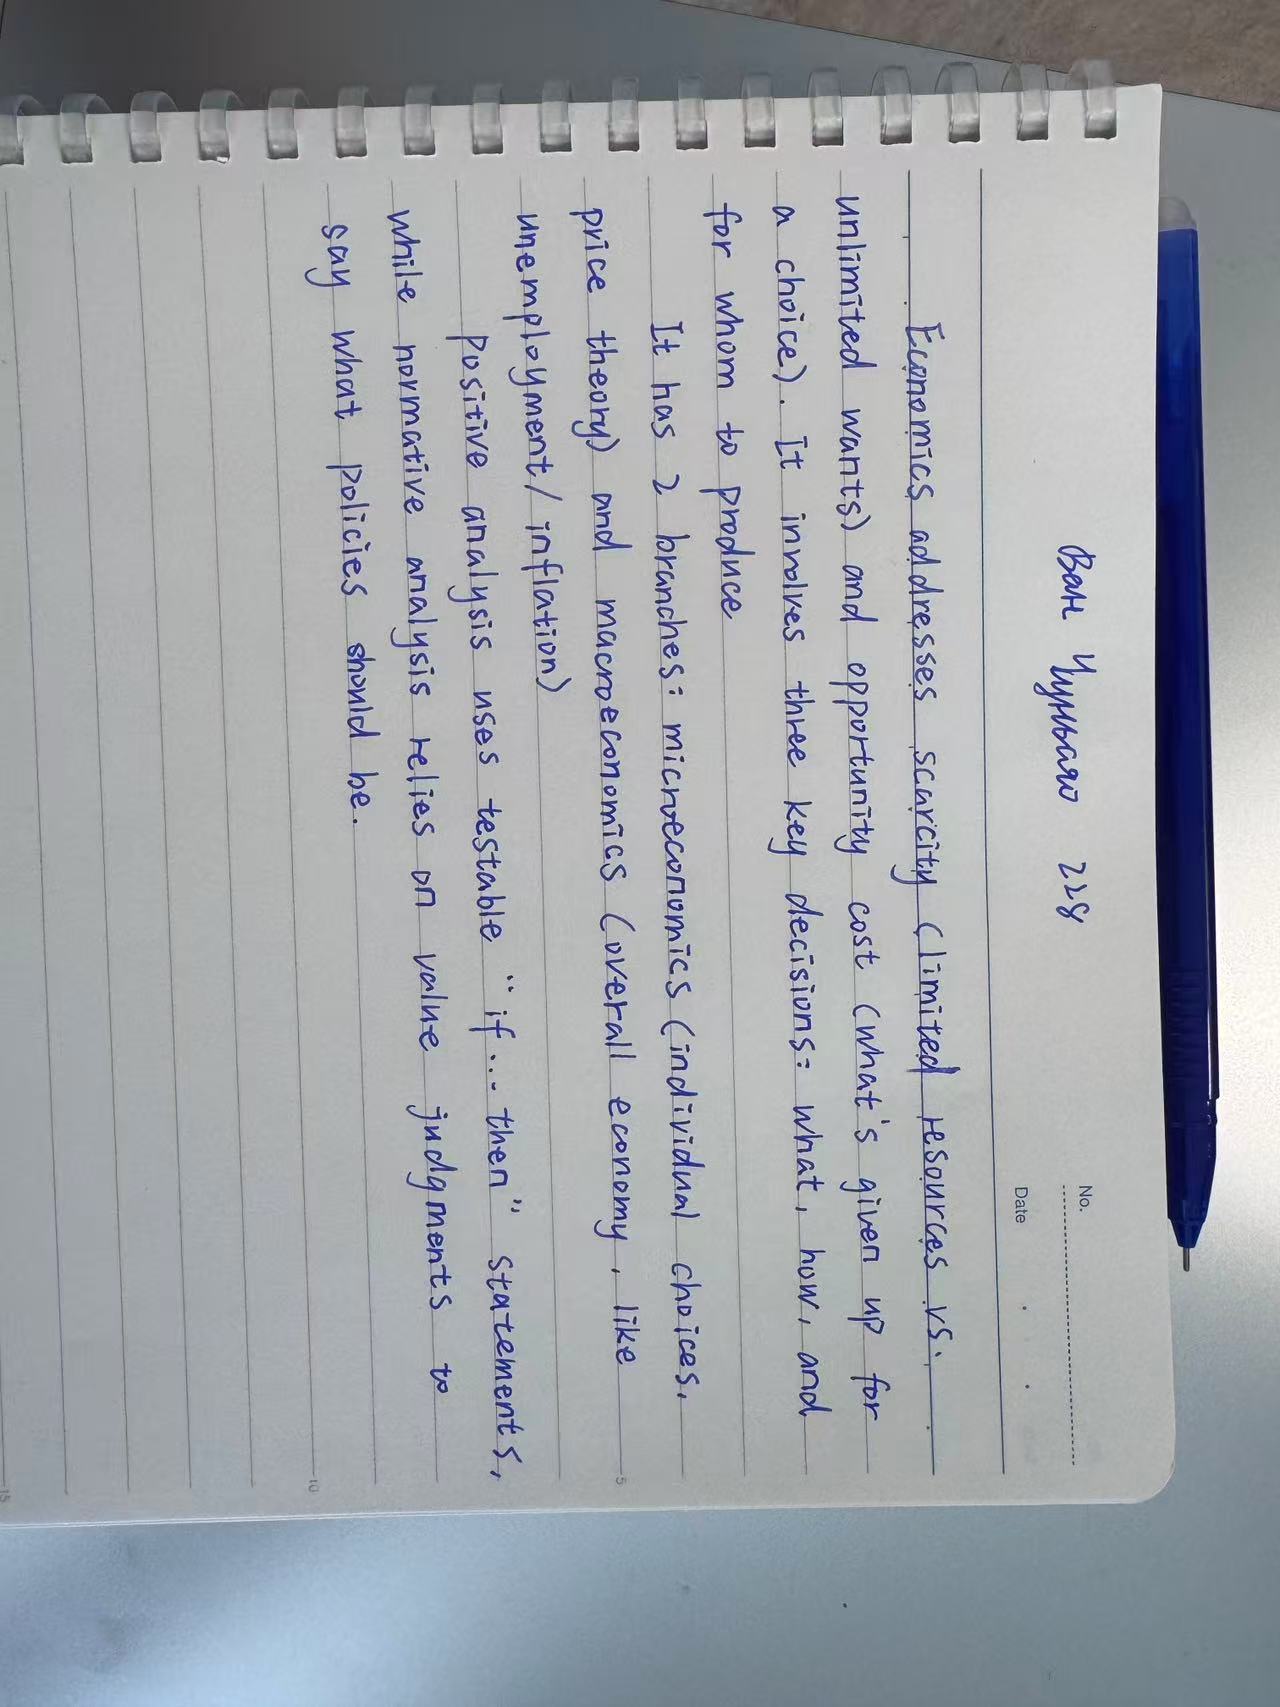 No.
Date
Ван Чуньяо 228
Economics addresses scarcity (limited resources vs.
unlimited wants) and opportunity cost (what's given up for
a choice). It involves three key decisions: what, how, and
for whom to produce
It has 2 branches: microeconomics (individual choices,
price theory) and macroeconomics (overall economy, like
unemployment/inflation)
Positive analysis uses testable "if... then" statements,
while normative analysis relies on value judgments to
say what policies should be.
5
10
15